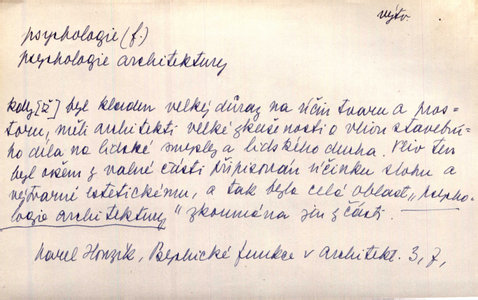 výtv.
psychologie (f.)
psychologie architektury
když [ž] byl kladen velký důraz na účin tvaru a pros-
toru, měli architekti velké zkušenosti o vlivu stavební-
ho díla na lidské smysly a lidského ducha. Vliv ten
byl ovšem z valné části připisován účinku slohu a
výtvarně estetickému, a tak byla celá oblast „psycho-
logie architektury" zkoumána jen z části.
Karel Honzík, Psychické funkce v architekt. 3, 7,